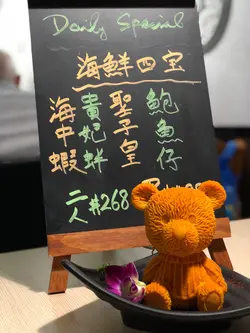 Daily Special
海鮮四宝
海中蝦
貴妃蚌
聖子皇
鮑魚仔
二人 $268